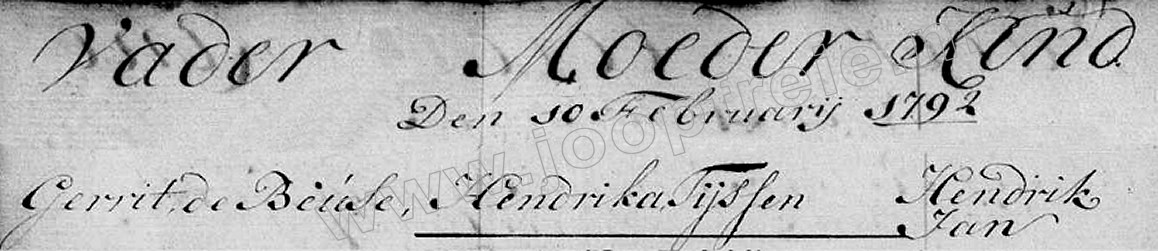 Vader Moeder Kind
Den 10 Februarij 1792
Gerrit, de Beúse, Hendrika Tijssen Hendrik
Jan